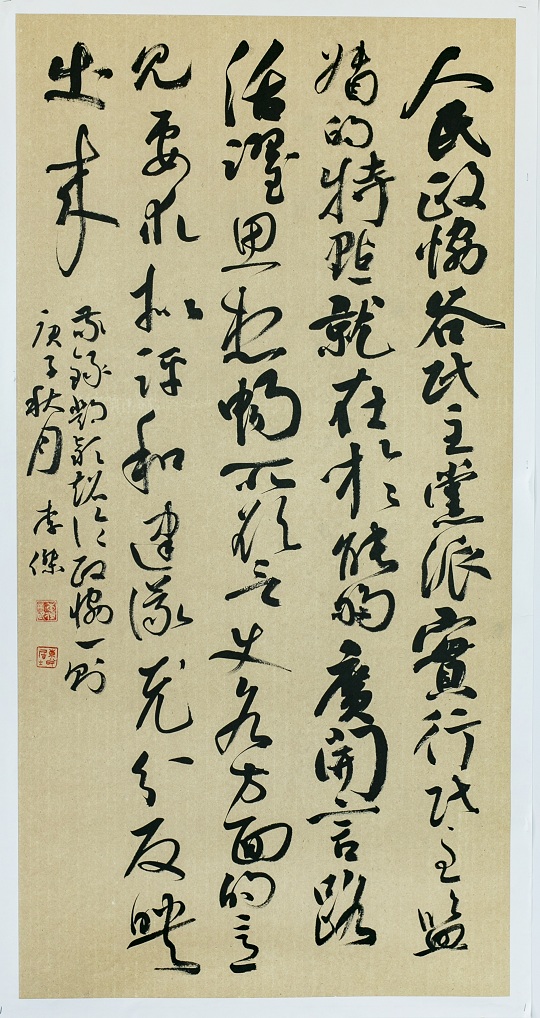 人民政協各民主黨派實行民主監
督的特點就在於能夠廣開言路
活躍思想暢所欲言使各方面的意
見要求批評和建議充分反映
出來
敬錄鄧穎超論政協一則
庚子秋月 李傑